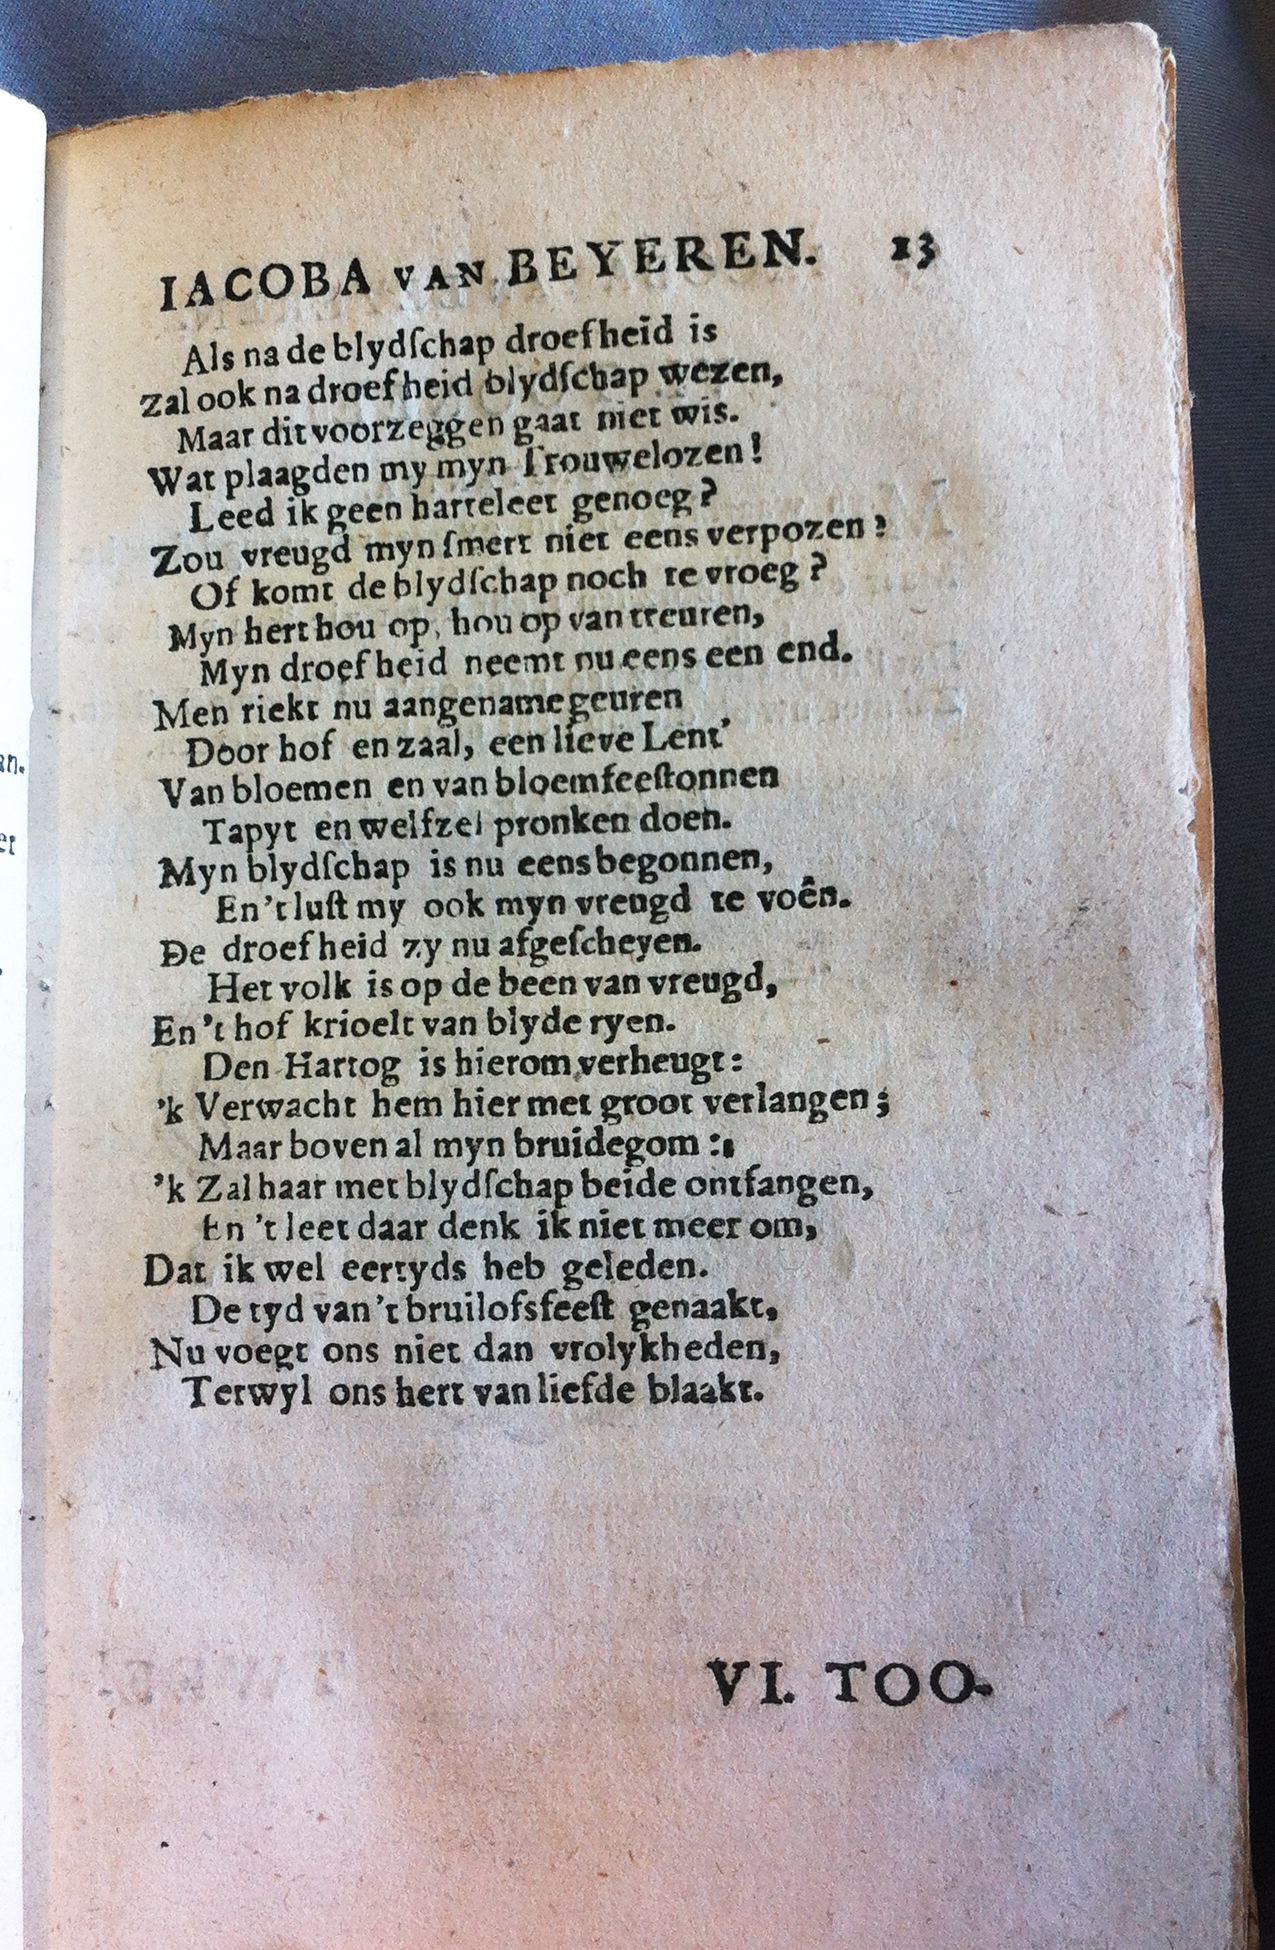 IACOBA VAN BEYEREN. 13
Als na de blydſchap droefheid is
Zal ook na droefheid blydſchap wezen,
Maar dit voorzeggen gaat niet wis.
Wat plaagden my myn Trouwelozen!
Leed ik geen harteleet genoeg?
Zou vreugd myn ſmert niet eens verpozen?
Of komt de blydſchap noch te vroeg?
Myn hert hou op, hou op van treuren,
Myn droefheid neemt nu eens een end.
Men riekt nu aangename geuren
Door hof en zaal, een lieve Lent'
Van bloemen en van bloemfeeſtonnen
Tapyt en welfzel pronken doen.
Myn blydſchap is nu eens begonnen,
En 't luſt my ook myn vreugd te voên.
De droefheid zy nu afgeſcheyen.
Het volk is op de been van vreugd,
En 't hof krioelt van blyde ryen.
Den Hartog is hierom verheugt:
'k Verwacht hem hier met groot verlangen;
Maar boven al myn bruidegom:
'k Zal haar met blydſchap beide ontfangen,
En 't leet daar denk ik niet meer om,
Dat ik wel eertyds heb geleden.
De tyd van 't bruilofsfeeſt genaakt,
Nu voegt ons niet dan vrolykheden,
Terwyl ons hert van liefde blaakt.
VI. TOO-
an.
et